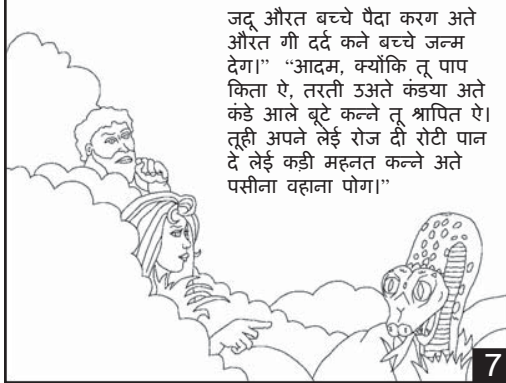 जदू औरत बच्चे पैदा करग अते
औरत गी दर्द कने बच्चे जन्म
देग।” “आदम, क्योंकि तू पाप
किता ऐ, तरती उअते कंडया अते
कंडे आले बूटे कन्ने तू श्रापित ऐ।
तूही अपने लेई रोज दी रोटी पान
दे लेई कड़ी महनत कन्ने अते
पसीना वहाना पोग।”
7